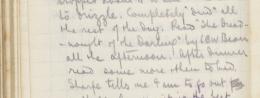 to drizzle. Completely "dud" all
the rest of the day. Read "The Dread-
nought of the Darling" by C.E.W. Bean
all the afternoon. After dinner
read some more then to bed.
Sharpe tells me I am to go out